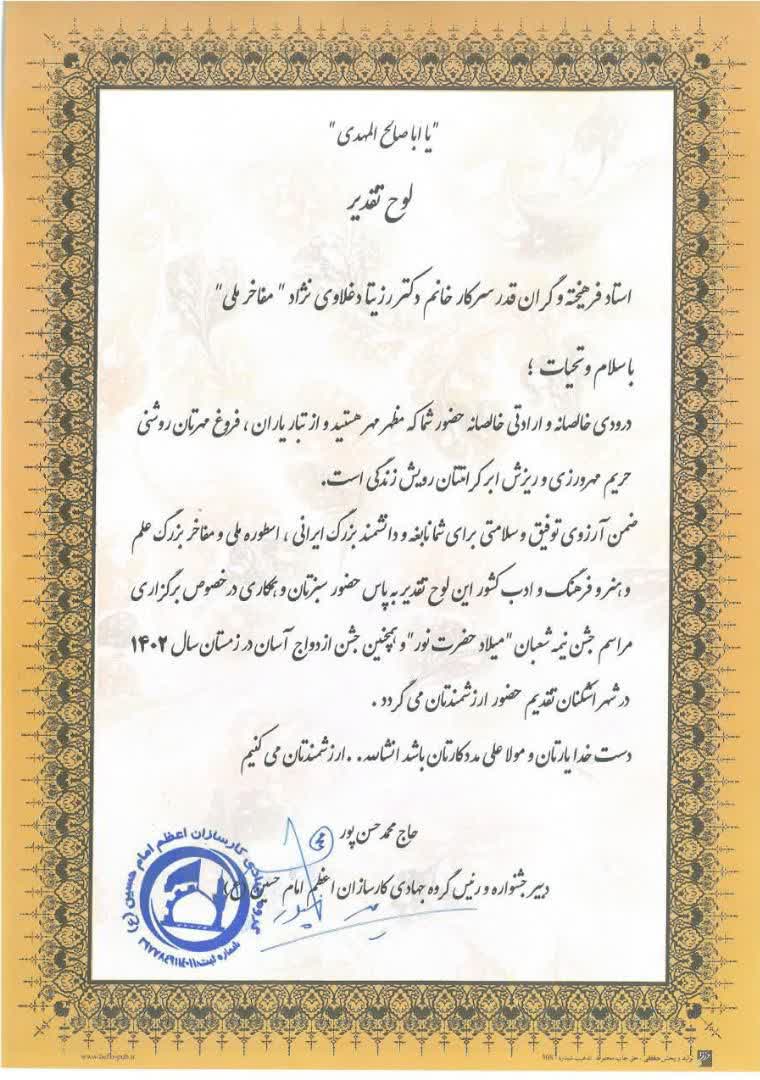 "یا اباصالح المهدی"
لوح تقدیر
استاد فرهیخته و گران قدر سرکار خانم دکتر رزیتا دغلاوی نژاد " مفاخر ملی "
با سلام و تحیات ؛
درودی خالصانه و ارادتی خالصانه حضور شما که مظهر مهر هستید و از تبار یاران ، فروغ مهرتان روشنی
حریم مهرورزی و ریزش ابر کرامتتان رویش زندگی است.
ضمن آرزوی توفیق و سلامتی برای شما نابغه و دانشمند بزرگ ایرانی ، اسطوره ملی و مفاخر بزرگ علم
و هنر و فرهنگ و ادب کشور این لوح تقدیر به پاس حضور سبزتان و همکاری در خصوص برگزاری
مراسم جشن نیمه شعبان "میلاد حضرت نور" و همچنین جشن ازدواج آسان در زمستان سال ۱۴۰۲
در شهر اشکنان تقدیم حضور ارزشمندتان می گردد .
دست خدا یارتان و مولا علی مددکارتان باشد انشالله . . ارزشمندتان می کنیم
حاج محمد حسن پور
دبیر جشنواره و رئیس گروه جهادی کارسازان اعظم امام حسین (ع)
گروه جهادی کارسازان اعظم امام حسین (ع)
شماره ثبت: